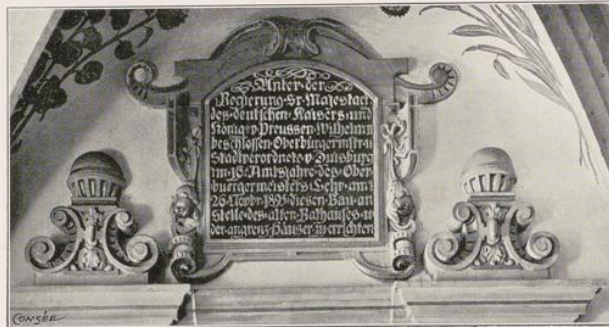 Unter der
Regierung Sr Majestaet
des deutschen Kaisers und
König v Preussen Wilhelm II
beschlossen Oberbürgermstr u
Stadtverordnete v Duisburg
im 16. Amtsjahre des Ober
buergermeisters Lehr am
26 Novbr 1895 diesen Bau an
Stelle des alten Rathauses u
der angrenz Häuser zu errichten
CONSÉE